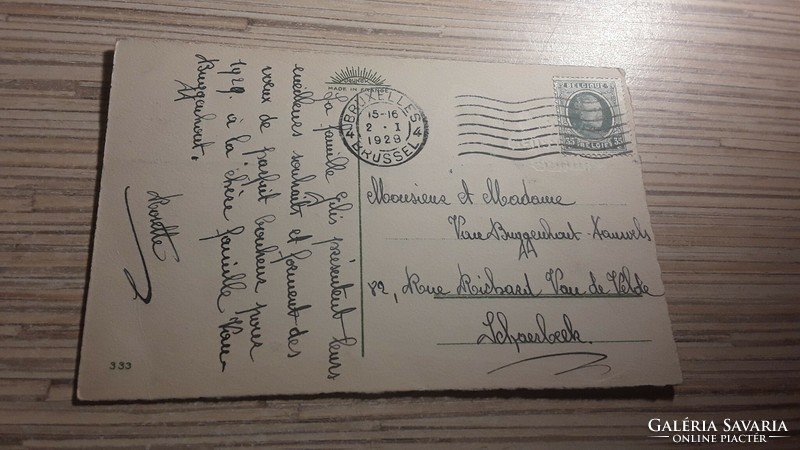 La famille Gilis présentent leurs
meilleurs souhaits et forment des
vœux de parfait bonheur pour
1929. à la chère famille Van-
Buggenhout.
MADE IN FRANCE
BRUXELLES
4 15-16 4
2 . I
1929
BRUSSEL
BELGIQUE
35 BELGIË 35
Monsieur et Madame
Van Buggenhout-
82, Rue Richard Van de Velde
Schaerbeek.
333
GALÉRIA SAVARIA
ONLINE PIACTÉR